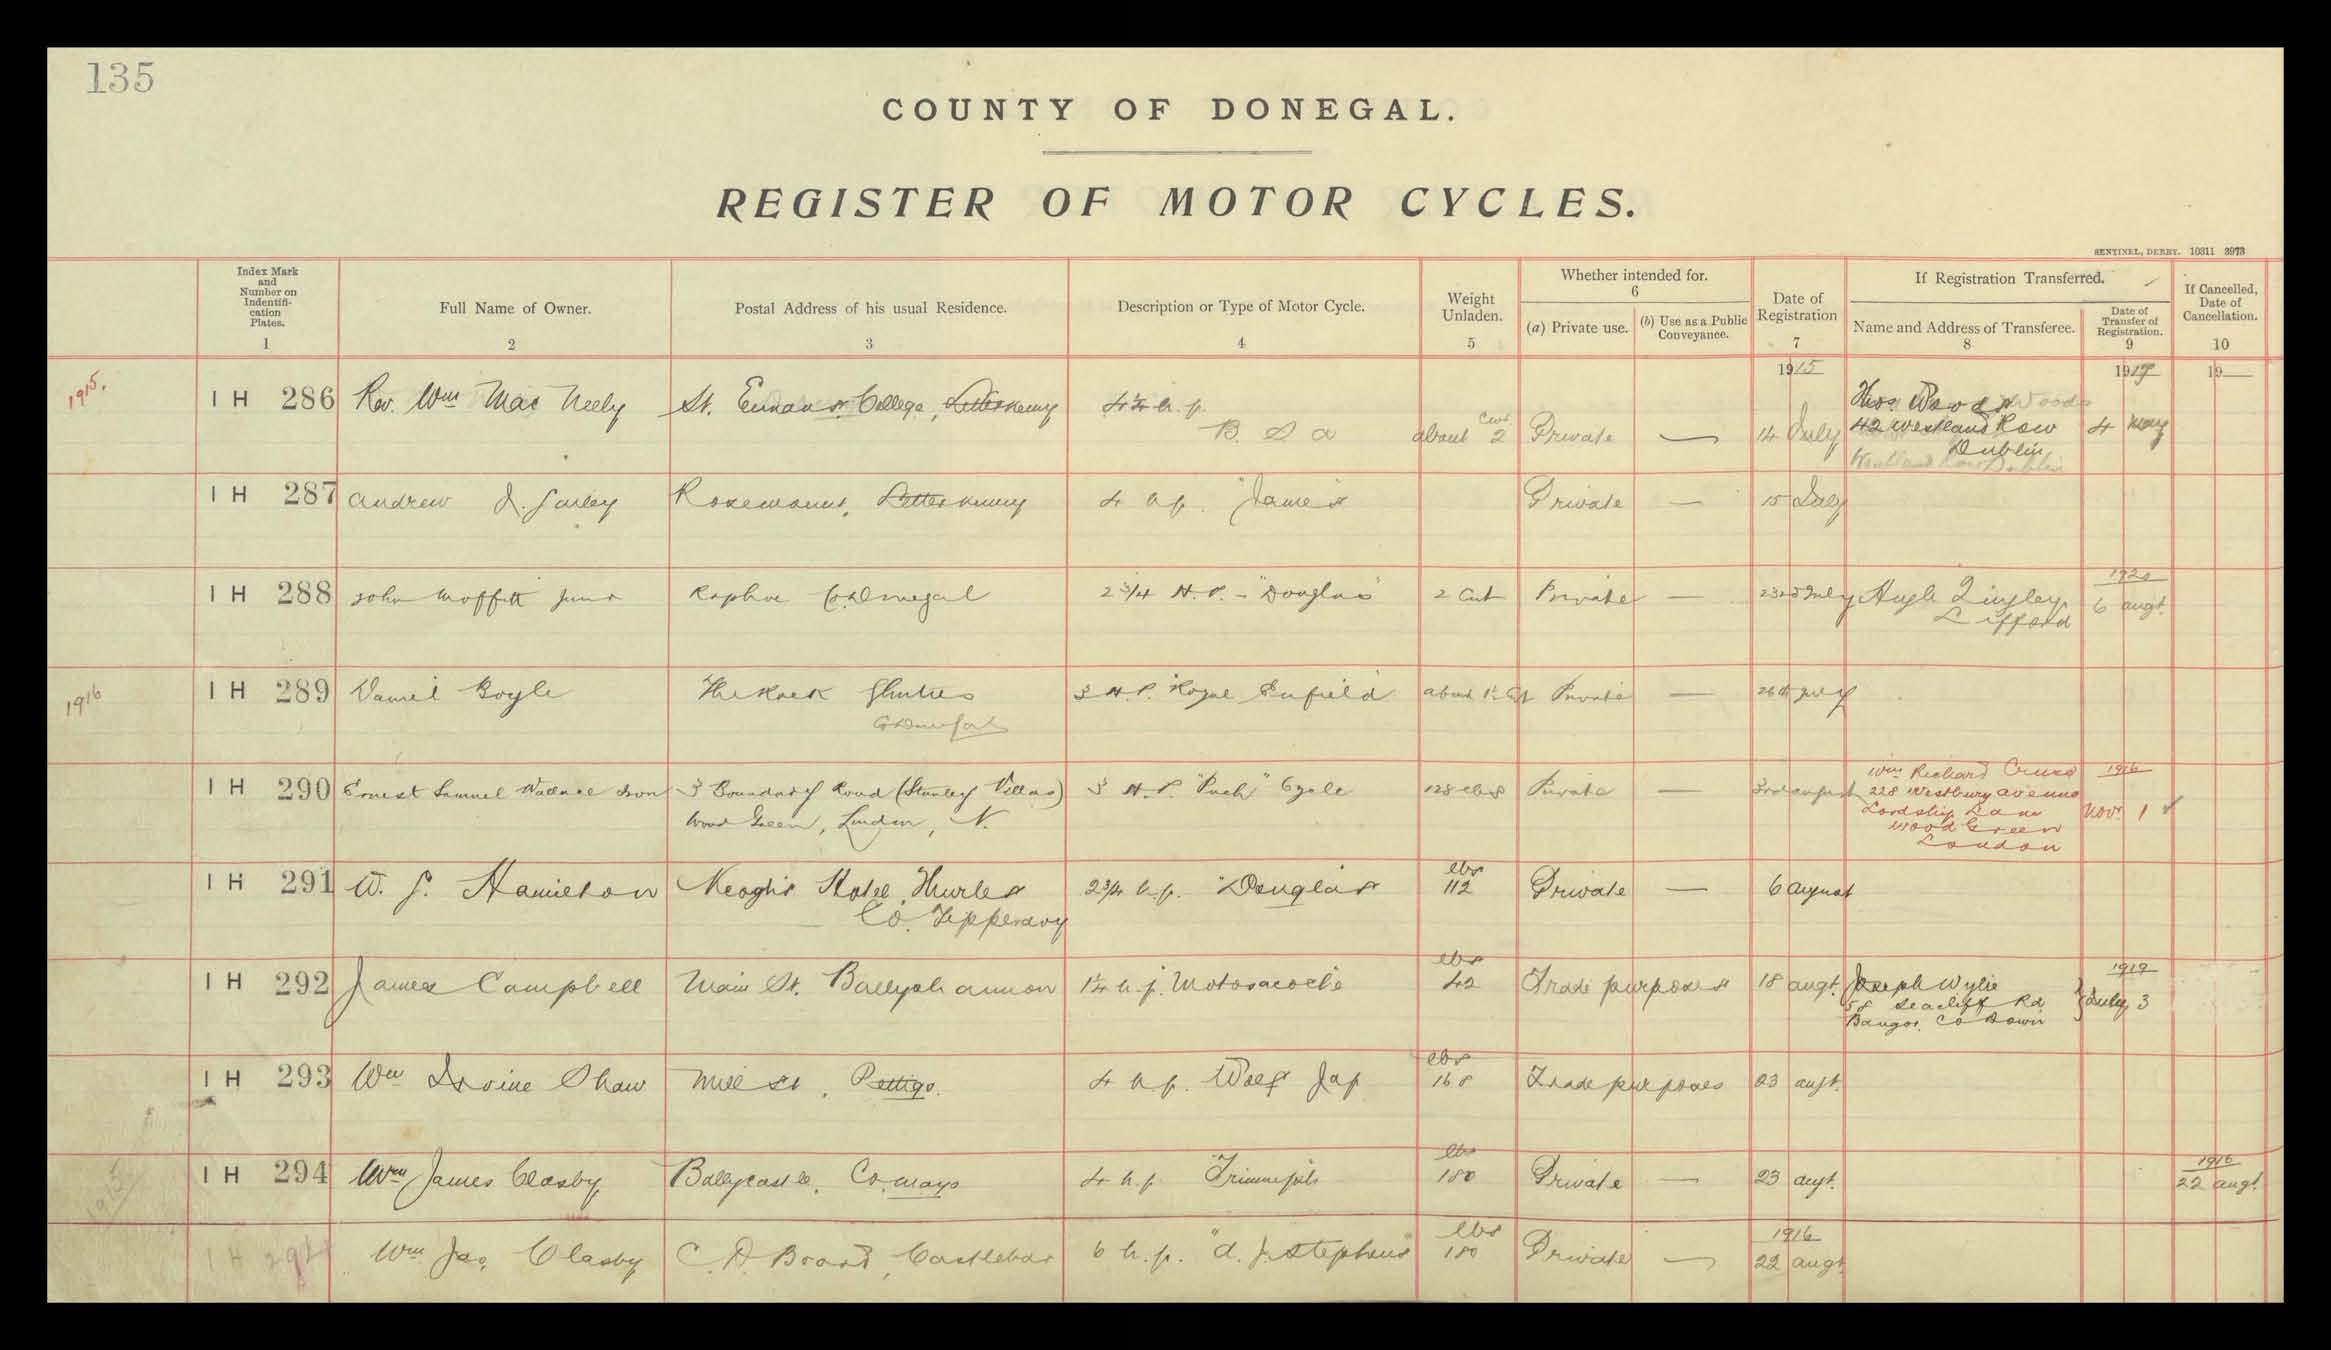 135
COUNTY OF DONEGAL.
REGISTER OF MOTOR CYCLES.
SENTINEL, DERRY. 10311 3973
Index Mark and Number on Indentifi-cation Plates. 1
Full Name of Owner. 2
Postal Address of his usual Residence. 3
Description or Type of Motor Cycle. 4
Weight Unladen. 5
Whether intended for. 6
(a) Private use.
(b) Use as a Public Conveyance.
Date of Registration 7
If Registration Transferred.
Name and Address of Transferee. 8
Date of Transfer of Registration. 9
If Cancelled, Date of Cancellation. 10
1915 1919 19
1915. IH 286 Rev. Wm Mac Neely St. Eunan's College, Letterkenny 4¼ h.p. B S A about 2 Cwt Private — 14 July Thos. Woods 4 May
42 Westland Row
Dublin
Westland Row Dublin
IH 287 Andrew Rosemount, Letterkenny 4 h.p. "James Private — 15 July
IH 288 John Moffitt Junr Raphoe Co Donegal 2 3/4 H.P. - "Douglas" 2 Cwt Private — 23rd July Hugh 1920
Lifford 6 augt.
1916 IH 289 Daniel Boyle The Rock Glenties 3 H.P. "Royal Enfield about Private — 26th July
Co Donegal
IH 290 Ernest Samuel Wallace 3 Boundary Road (Stanley Villas) 3 H.P. "Puch" Cycle 128 lbs Private — 3rd august Wm Richard 1916
Wood Green, London, N. 228 Westbury avenue
Lordship Lane Nov. 1
Wood Green
London
IH 291 W. J. Hamilton Keogh's Hotel, Thurles 2 3/4 h.p. "Douglas lbs 112 Private — 6 august
Co. Tipperary
IH 292 James Campbell Main St. Ballyshannon 1¼ h.p. Motosacoche lbs 42 Trade purposes 18 augt. Joseph Wylie 1919
58 Seacliff Rd July 3
Bangor, Co Down
IH 293 Wm Irvine Shaw Mill St, Pettigo. 4 h.p. Wolf Jap lbs 168 Trade purposes 23 augt.
1915 IH 294 Wm James Clasby Ballycastle, Co. Mayo 4 h.p. Triumph lbs 180 Private — 23 augt. 1916 22 augt.
IH 294 Wm Jas. Clasby C. D. Board, Castlebar 6 h.p. "A. J. Stephens" lbs 180 Private — 1916 22 augt.